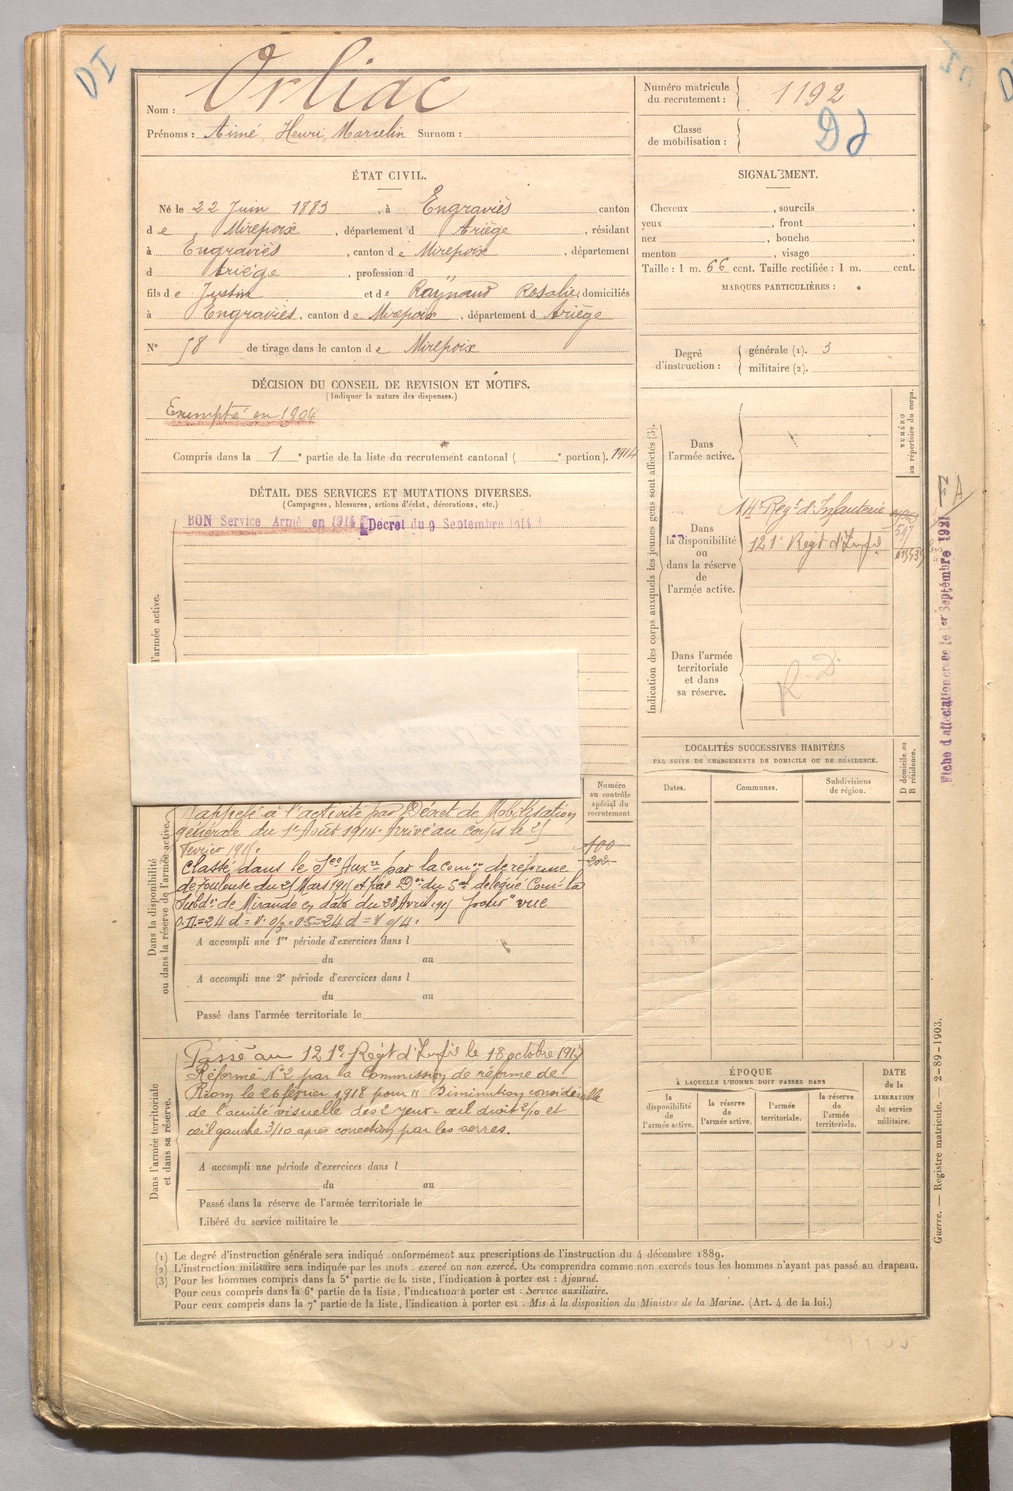 DI
Nom : Orliac
Prénoms : Aimé, Henri, Marcelin Surnom :
Numéro matricule du recrutement : 1192
Classe de mobilisation :
ÉTAT CIVIL.
Né le 22 Juin 1883, à Engraviès canton
de Mirepoix, département d Ariège, résidant
à Engraviès, canton de Mirepoix, département
d Ariège, profession d "
fils de Justin et de Raynaud Rosalie, domiciliés
à Engraviès, canton de Mirepoix, département d Ariège
N° 58 de tirage dans le canton de Mirepoix
SIGNALEMENT.
Cheveux , sourcils ,
yeux , front ,
nez , bouche ,
menton , visage .
Taille : 1 m. 66 cent. Taille rectifiée : 1 m. cent.
MARQUES PARTICULIÈRES :
Degré d'instruction : générale (1). 3
militaire (2).
DÉCISION DU CONSEIL DE REVISION ET MOTIFS.
(Indiquer la nature des dispenses.)
Exempté en 1904
Compris dans la 1e partie de la liste du recrutement cantonal ( e portion). 1914
DÉTAIL DES SERVICES ET MUTATIONS DIVERSES.
(Campagnes, blessures, actions d'éclat, décorations, etc.)
BON Service Armé en 1914 Décret du 9 Septembre 1914
l'armée active.
Dans la disponibilité
ou dans la réserve de l'armée active.
Numéro
au contrôle
spécial du
recrutement
Rappelé à l'activité par Décret de Mobilisation
générale du 1er Août 1914. Arrivé au corps le 25
février 1915.
Classé dans le Sce Auxre par la Comon de réforme
de Toulouse du 25 Mars 1915 et par
Subdon de Mirande en date du 28 Avril 1915 vue
A accompli une 1re période d'exercices dans l
du au
A accompli une 2e période d'exercices dans l
du au
Passé dans l'armée territoriale le
Dans l'armée territoriale
et dans sa réserve.
Passé au 121e Regt d'Infie le 18 octobre 1917
Réformé N°2 par la Commission de réforme de
Riom le 26 février 1918 pour "Diminution considérable
de l'acuité visuelle des 2 yeux - œil droit 2/10 et
œil gauche 3/10 après correction par les verres.
A accompli une période d'exercices dans l
du au
Passé dans la réserve de l'armée territoriale le
Libéré du service militaire le
Indication des corps auxquels les jeunes gens sont affectés (3).
NUMÉRO
au répertoire du corps.
Dans
l'armée active.
Dans
la disponibilité
ou
dans la réserve
de
l'armée active.
14e Regt d'Infanterie
121e Regt d'Infie
Dans l'armée
territoriale
et dans
sa réserve.
R. D.
Fiche d'allocation créée le 1er Septembre 1921
LOCALITÉS SUCCESSIVES HABITÉES
PAR SUITE DE CHANGEMENTS DE DOMICILE OU DE RÉSIDENCE.
Dates.
Communes.
Subdivisions
de région.
D domicile ou
R résidence.
ÉPOQUE
À LAQUELLE L'HOMME DOIT PASSER DANS
la
disponibilité
de
l'armée active.
la réserve
de
l'armée active.
l'armée
territoriale.
la réserve
de
l'armée
territoriale.
DATE
de la
LIBÉRATION
du service
militaire.
Guerre. — Registre matricule. — 2-89-1903.
(1) Le degré d'instruction générale sera indiqué conformément aux prescriptions de l'instruction du 4 décembre 1889.
(2) L'instruction militaire sera indiquée par les mots : exercé ou non exercé. On comprendra comme non exercés tous les hommes n'ayant pas passé au drapeau.
(3) Pour les hommes compris dans la 5e partie de la liste, l'indication à porter est : Ajourné.
Pour ceux compris dans la 6e partie de la liste, l'indication à porter est : Service auxiliaire.
Pour ceux compris dans la 7e partie de la liste, l'indication à porter est : Mis à la disposition du Ministre de la Marine. (Art. 4 de la loi.)